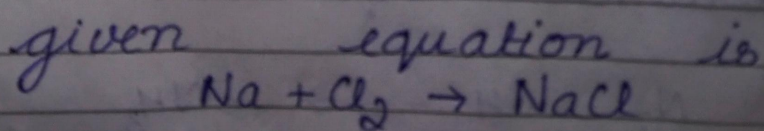 given equation is
Na + Cl₂ → NaCl